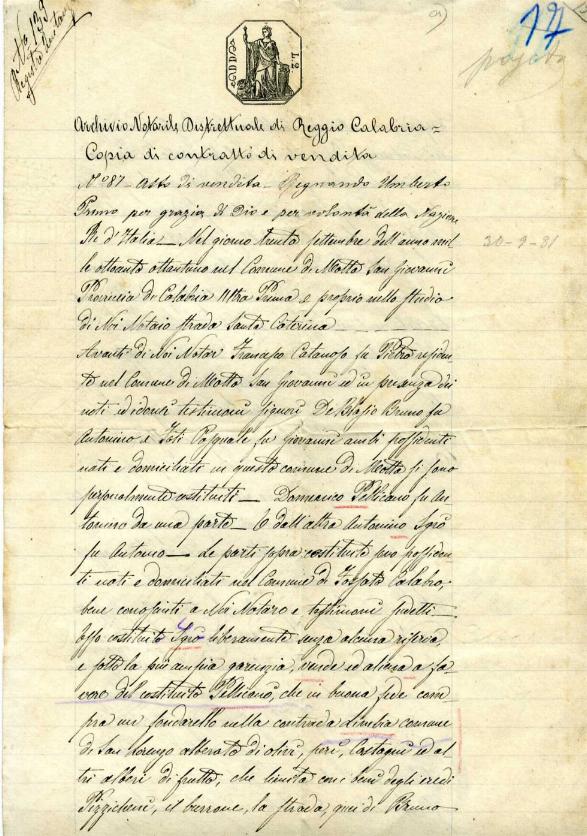 N.o 139
17
Archivio Notarile Distrettuale di Reggio Calabria =
Copia di contratto di vendita
N.o 87 - Atto di vendita - Regnando Umberto
Primo per grazia di Dio e per volontà della Nazione
Re d'Italia - Nel giorno trenta settembre dell'anno mil
le ottocento ottantuno nel Comune di Motta San Giovanni
30-9-81
Provincia di Calabria Ultra Prima e proprio nello studio
di Noi Notaio strada Santa Caterina
Avanti di Noi Notar Francesco Catanoso fu Pietro residen
te nel Comune di Motta San Giovanni ed in presenza dei
noti ed idonei testimoni signori De Biasio Bruno fu
Antonino e Foti Pasquale fu Giovanni ambi possidenti
nati e domiciliati in questo comune di Motta si sono
personalmente costituiti - Domenico Pellicano fu An
tonino da una parte - E dall'altra Antonino Sgrò
fu Antonio - Le parti sopra costituite sono possiden
ti nati e domiciliati nel Comune di Fossato Calabro,
bene conosciuti a Noi Notaro e testimoni suddetti
Esso costituito Sgrò liberamente senza alcuna riserva,
e sotto la più ampia garenzia, vende ed aliena a fa
vore del costituito Pellicano, che in buona fede com
pra un fondaretto nella contrada Limbia comune
di San Lorenzo alberato di olivi, peri, Castagni ed al
tri alberi di frutto, che limita con i beni degli eredi
il burrone, la strada, quei di Bruno